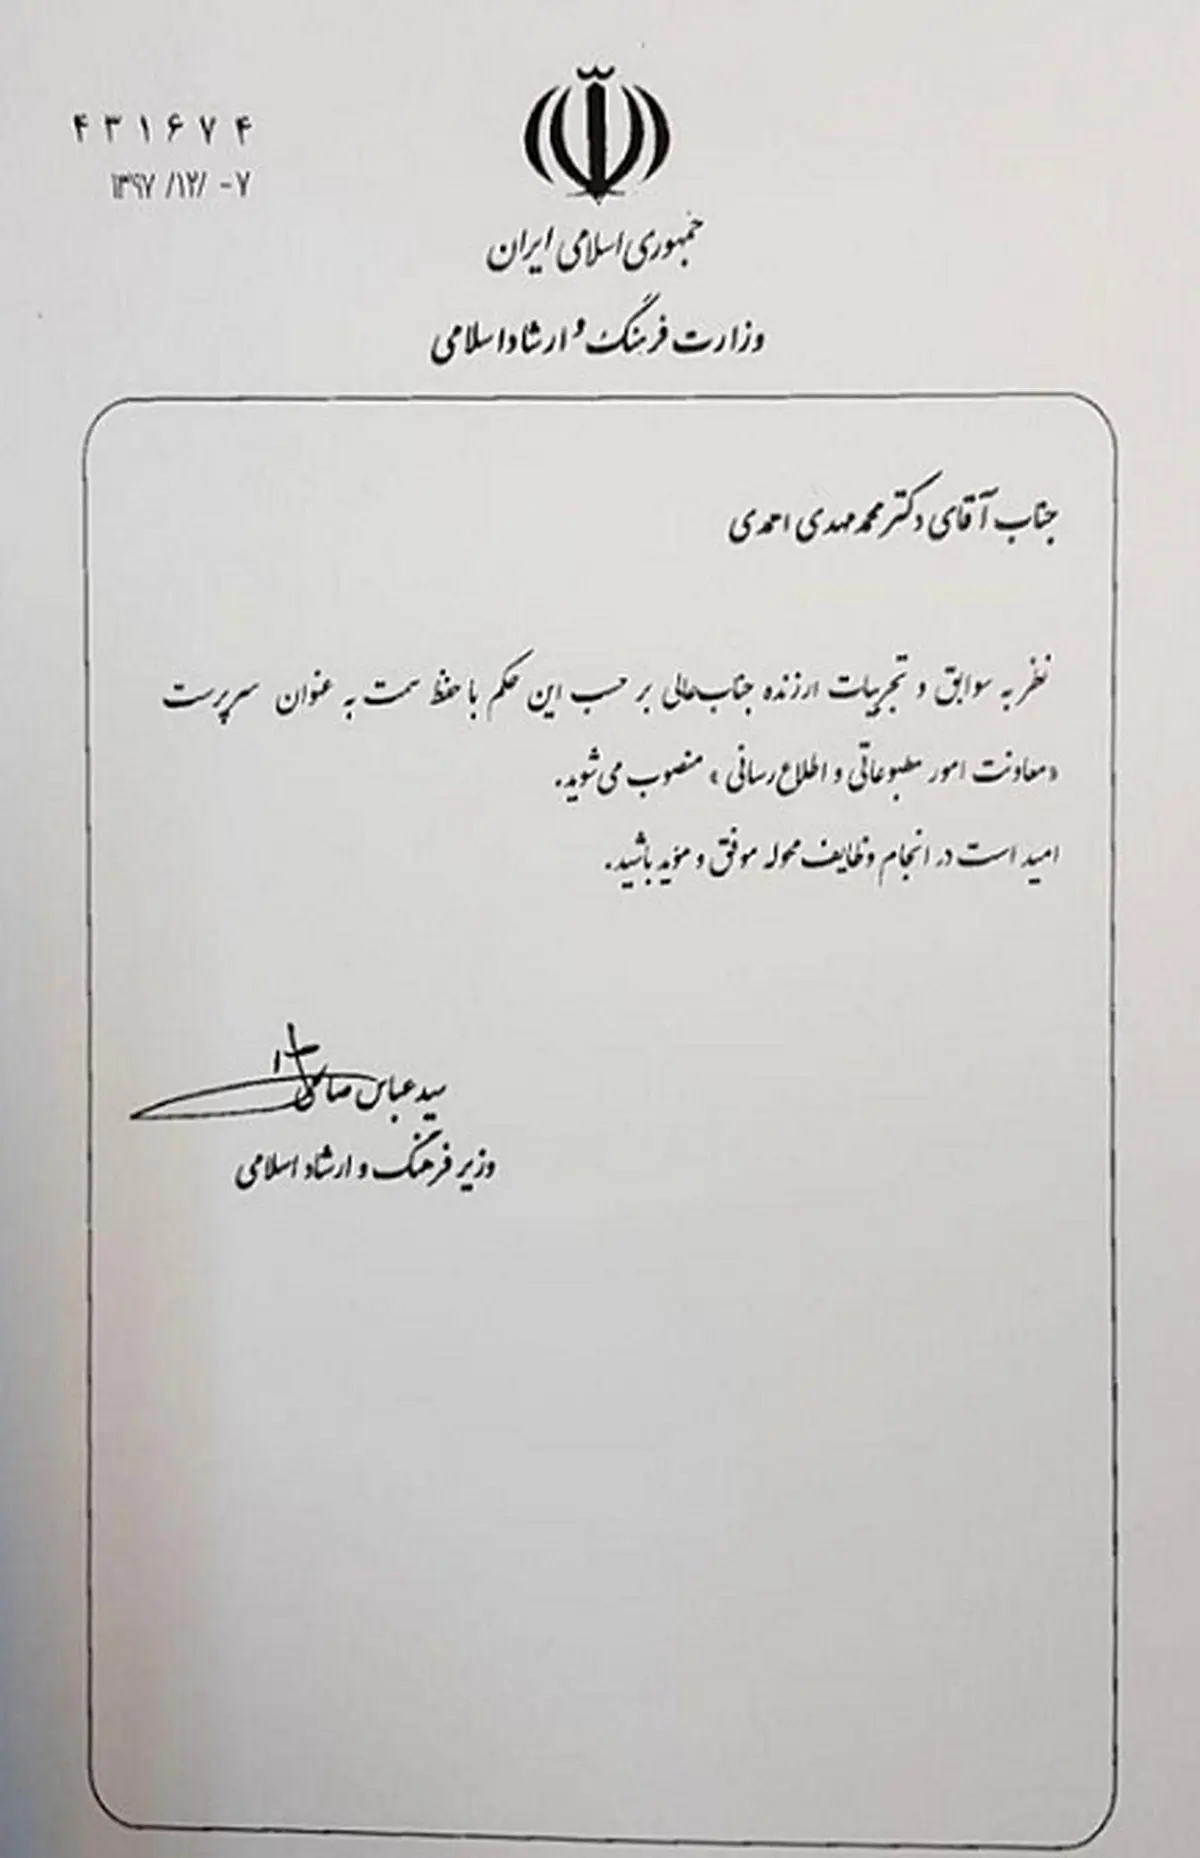 ۴۳۱۶۷۴
۱۳۹۷/۱۲/ -۷
جمهوری اسلامی ایران
وزارت فرهنگ و ارشاد اسلامی
جناب آقای دکتر محمدمهدی احمدی
نظر به سوابق و تجربیات ارزنده جناب‌عالی بر حسب این حکم با حفظ سمت به عنوان سرپرست
«معاونت امور مطبوعاتی و اطلاع‌رسانی» منصوب می‌شوید.
امید است در انجام وظایف محوله موفق و مؤید باشید.
سید عباس صالحی
وزیر فرهنگ و ارشاد اسلامی